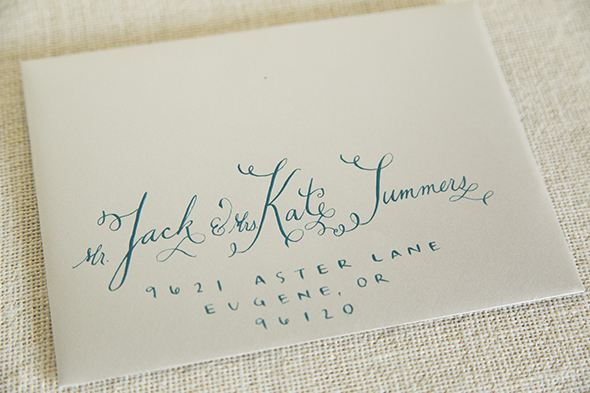 Mr. Jack & Mrs Kate Summers
9621 ASTER LANE
EUGENE, OR
96120